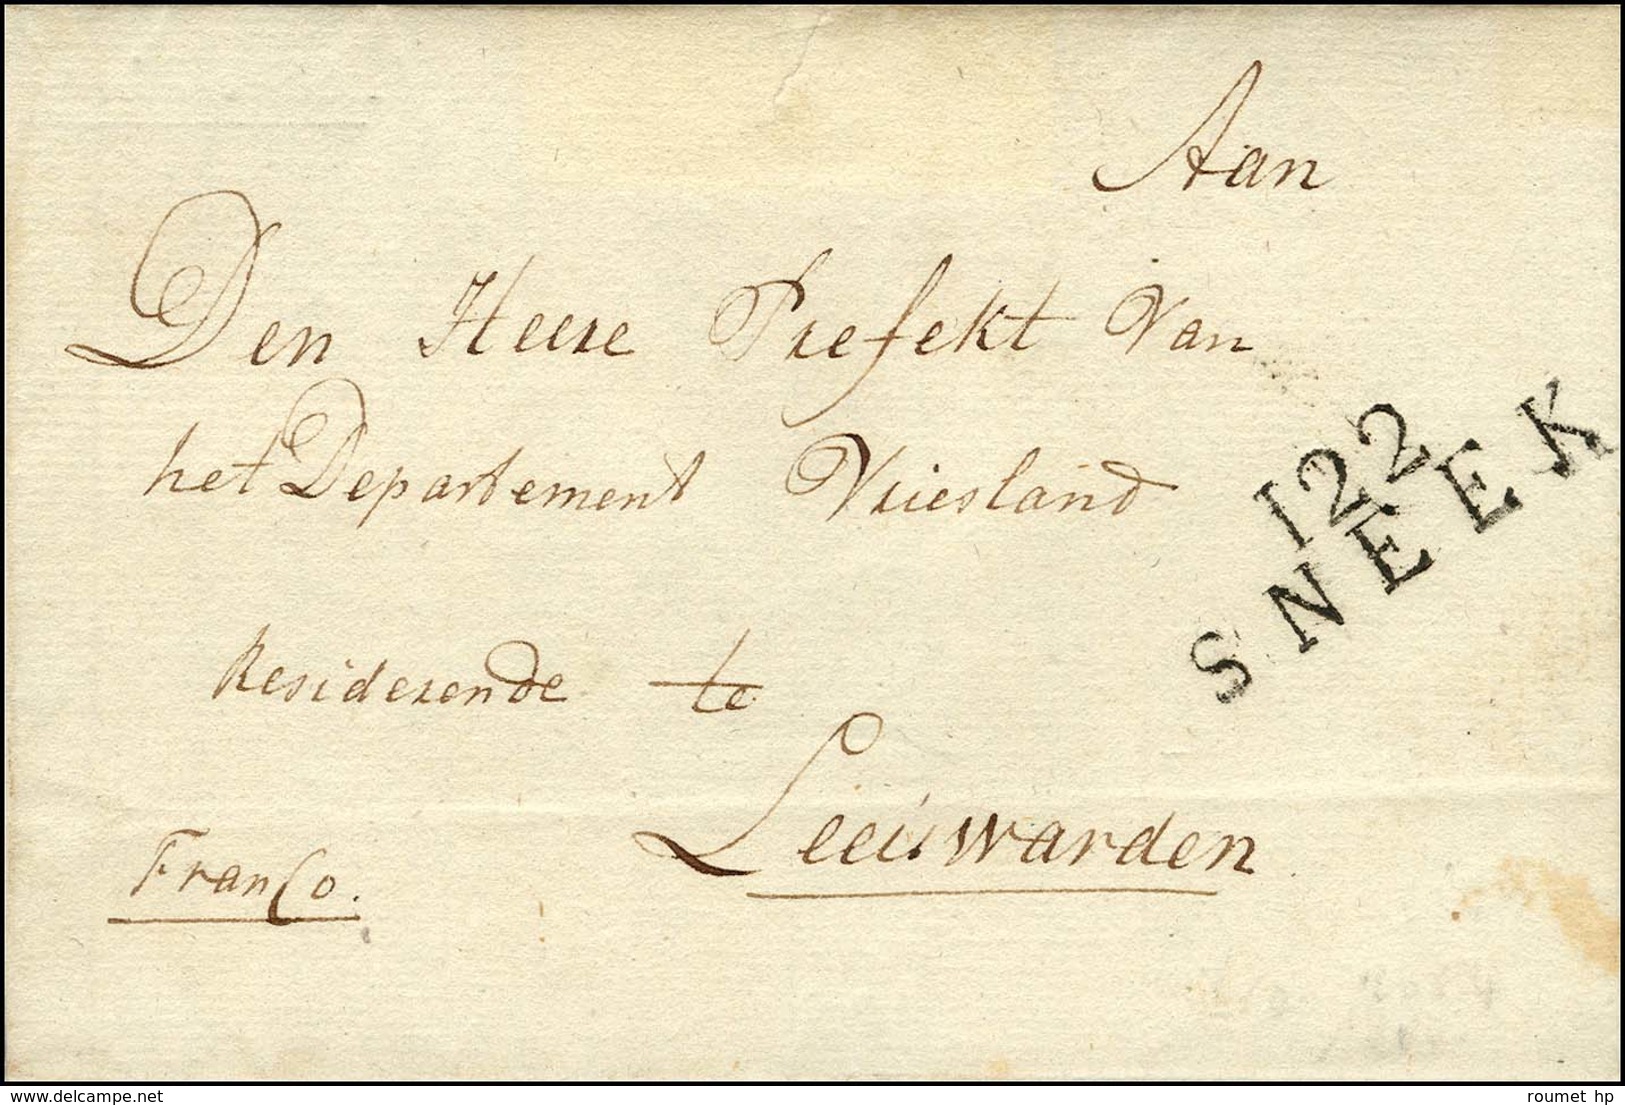 Aan
Den Heere Prefekt Van
het Departement Vriesland
122
SNEEK
Residerende te
Leeuwarden
Franco.
delcampe.net
roumet hp